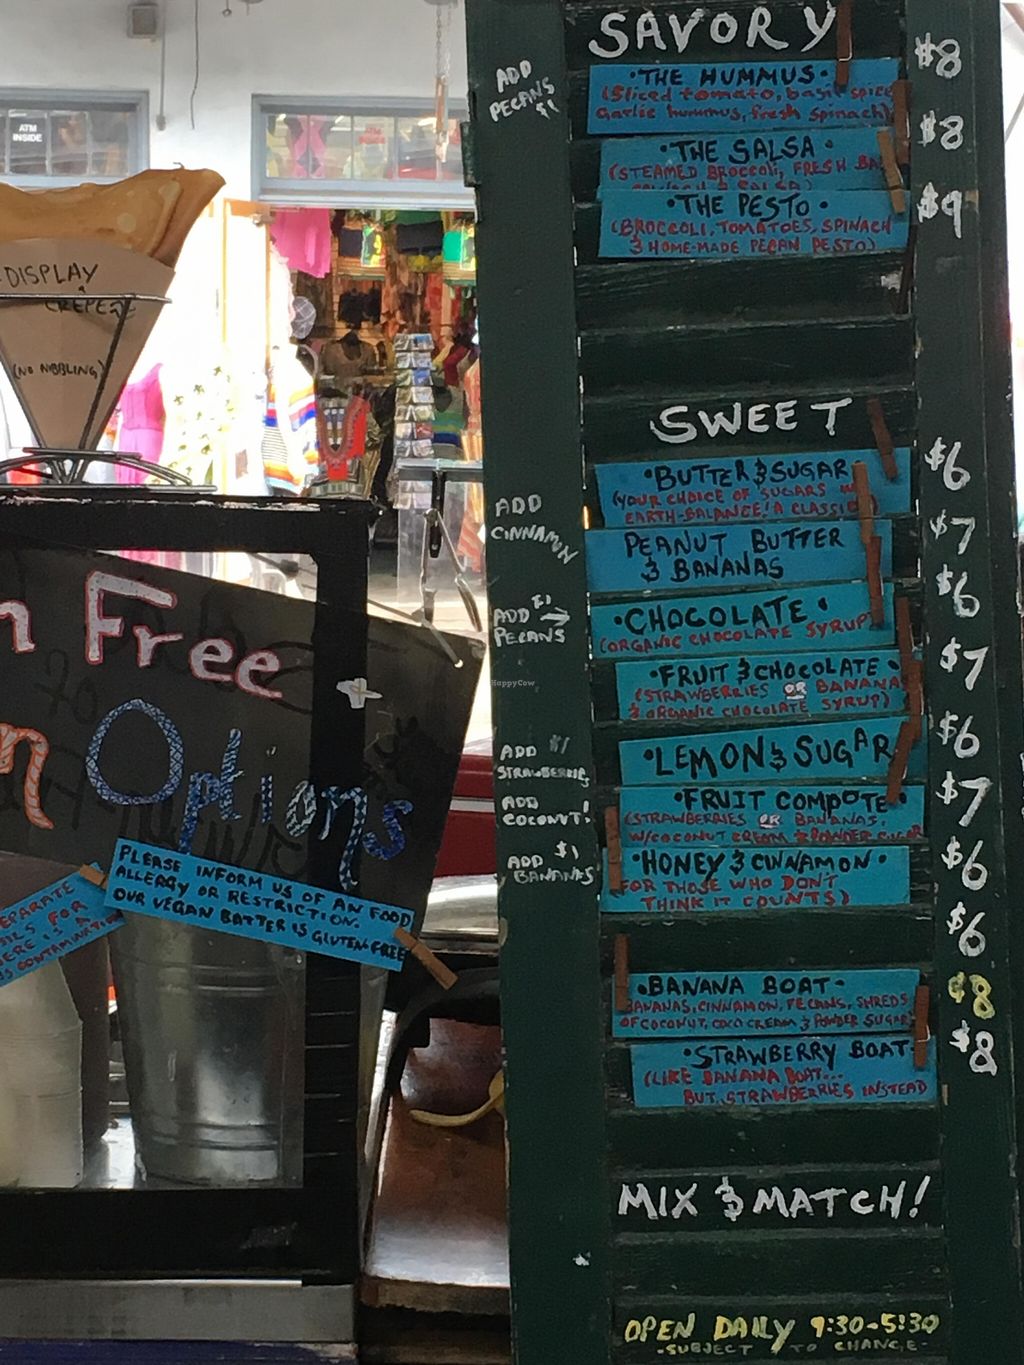 SAVORY
ADD
PECANS
$1
•THE HUMMUS•
(Sliced tomato, basil
Garlic hummus, fresh spinach)
$8
•THE SALSA•
(STEAMED BROCCOLI, FRESH
& SALSA)
$8
•THE PESTO•
(BROCCOLI, TOMATOES, SPINACH
& HOME-MADE PECAN PESTO)
$9
SWEET
•BUTTER & SUGAR
(YOUR CHOICE OF SUGARS
EARTH-BALANCE! A CLASSIC
$6
ADD
CINNAMON
PEANUT BUTTER
& BANANAS
$7
ADD $1
PECANS
•CHOCOLATE•
(ORGANIC CHOCOLATE SYRUP)
$6
•FRUIT & CHOCOLATE•
(STRAWBERRIES OR BANANA
& ORGANIC CHOCOLATE SYRUP)
$7
ADD $1
STRAWBERRIES
•LEMON & SUGAR
$6
ADD
COCONUT!
•FRUIT COMPOTE•
(STRAWBERRIES OR BANANAS,
W/COCONUT CREAM & POWDER SUGAR
$7
ADD $1
BANANAS
•HONEY & CINNAMON•
(FOR THOSE WHO DON'T
THINK IT COUNTS)
$6
$6
•BANANA BOAT•
BANANAS, CINNAMON, PECANS, SHREDS
OF COCONUT, COCO CREAM & POWDER SUGAR
$8
•STRAWBERRY BOAT•
(LIKE BANANA BOAT...
BUT, STRAWBERRIES INSTEAD
$8
MIX & MATCH!
OPEN DAILY 9:30-5:30
-SUBJECT TO CHANGE-
ATM
INSIDE
ATM
INSIDE
DISPLAY
CREPE
(NO NIBBLING)
n Free
n Options
PLEASE INFORM US OF AN FOOD
ALLERGY OR RESTRICTION.
OUR VEGAN BATTER IS GLUTEN FREE
FOR
IS A
CONTAMINATION
HappyCow